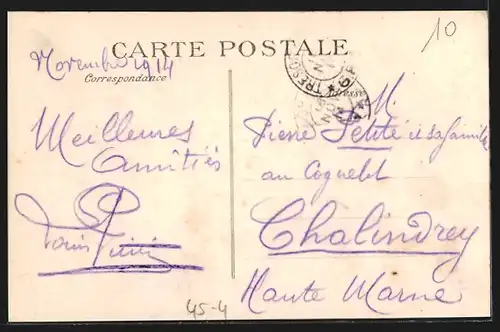 10
CARTE POSTALE
Novembre 1914
Correspondance
Adresse
M.
Meilleures
Amitiés
Pierre Petite et sa famille
au Coquelet
Chalindrey
Haute Marne
Louis
45-4